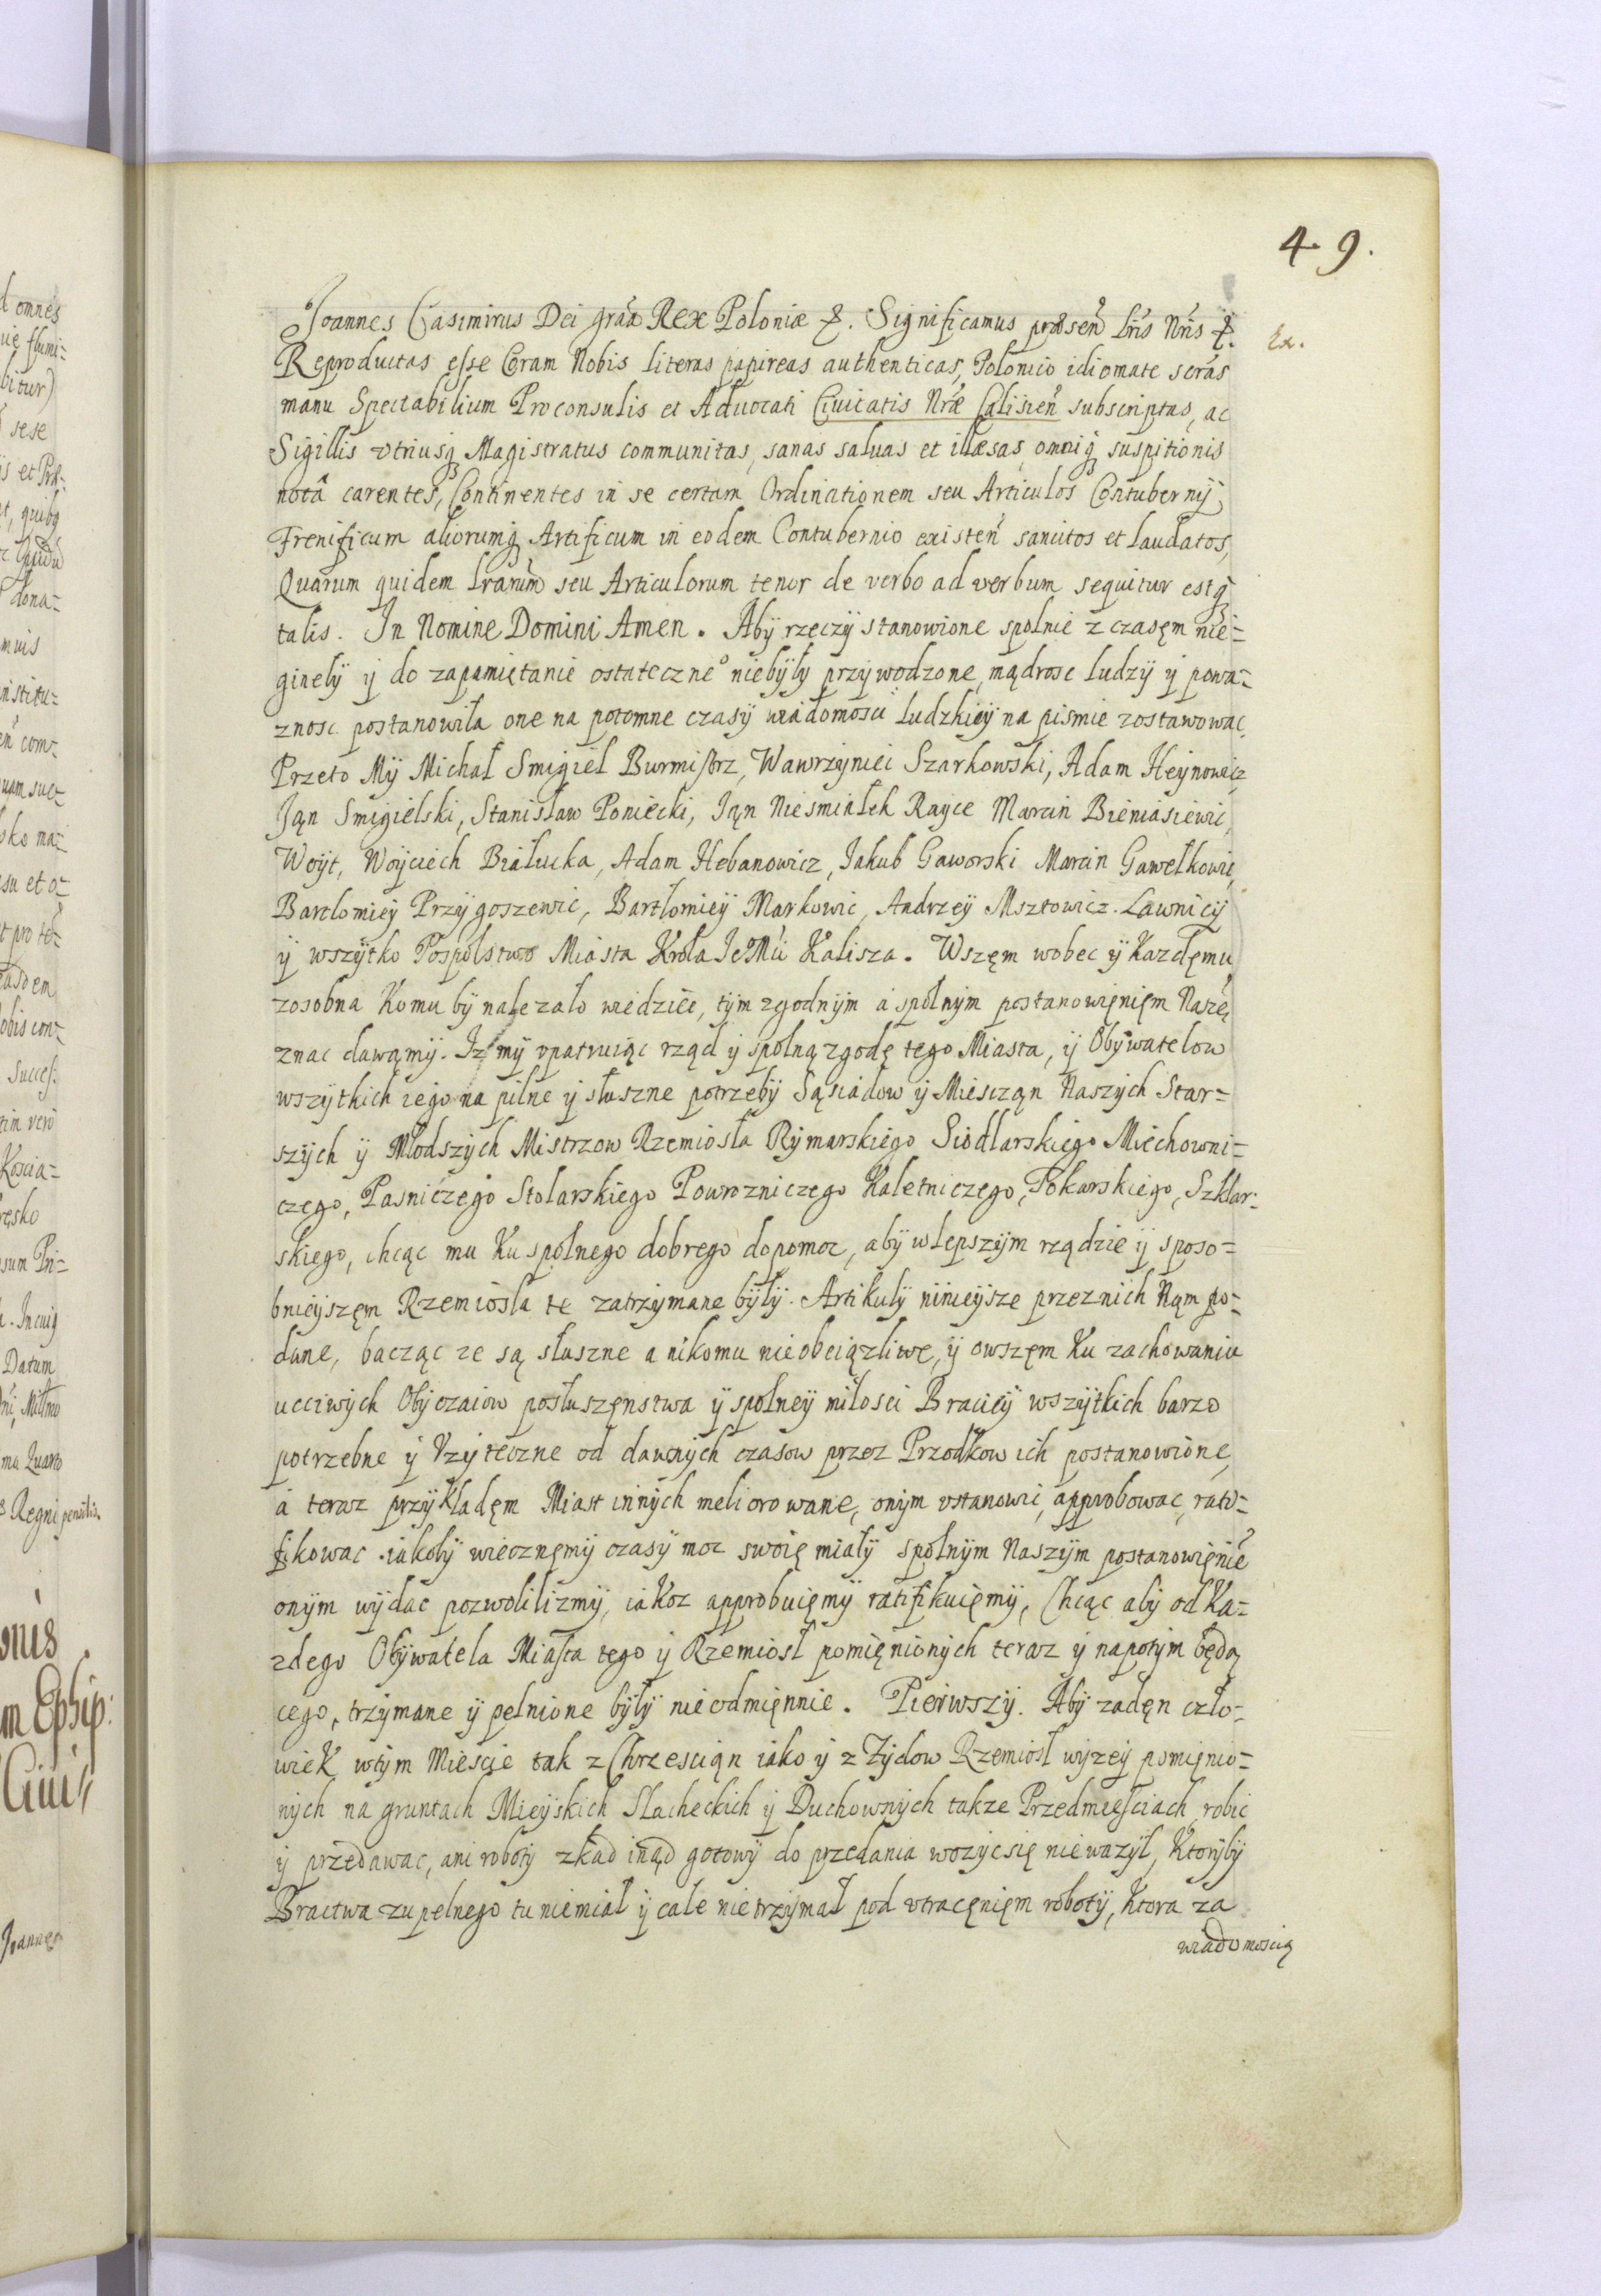 49.
Joannes Casimirus Dei grãa Rex Poloniæ &. Significamus præseñ lr̃is Nr̃is &.
Ex.
Reproductas esse Coram Nobis literas papireas authenticas, Polonico idiomate scr̃as
manu Spectabilium Proconsulis et Aduocati Ciuitatis Nr̃æ Calisieñ subscriptas, ac
Sigillis vtriusq Magistratus communitas, sanas saluas et illæsas, omniq suspitionis
notâ carentes, Continentes in se certam Ordinationem seu Articulos Contubernij
Frenificum aliorumq Artificum in eodem Contubernio existeñ sancitos et laudatos,
Quarum quidem lr̃arum seu Articulorum tenor de verbo ad verbum sequitur estq
talis. In Nomine Domini Amen. Abÿ rzeczÿ stanowione spolnie z czasęm nie=
ginelÿ ÿ do zapamiętanie ostateczneº niebÿłÿ przÿwodzone, mądrosc ludzÿ ÿ powa=
znosc postanowiła one na potomne czasÿ wiadomosci ludzkieÿ na pismie zostawowac,
Przeto Mÿ Michał Smigiel Burmistrz, Wawrzÿniec Szarkowski, Adam Heÿnowicz
Jąn Smigielski, Stanisław Poniecki, Jąn Niesmiałek Raÿce Marcin Bieniasiewic,
Woÿt, Woÿciech Białucka, Adam Hebanowicz, Jakub Gaworski Marcin Gawełkowic,
Bartlomieÿ Przÿgoszewic, Bartłomieÿ Markowic, Andrzeÿ Msztowicz. Lawnicÿ
ÿ wszÿtko Pospolstwo Miasta Krola JeMci Kalisza. Wszęm wobec ÿ Kazdęmu
zosobna Komu bÿ nalezało wiedziec, tÿm zgodnÿm a spolnÿm postanowięnięm Naszę
znac dawąmÿ. Iz mÿ vpatruiąc rząd ÿ spolną zgodę tego Miasta, ÿ Obÿwatelow
wszÿtkich iego na pilne ÿ słuszne potrzebÿ Sąsiadow ÿ Miescząn Naszÿch Star=
szÿch ÿ Młodszÿch Mistrzow Rzemiosła Rÿmarskiego Siodlarskiego Miechowni=
czego, Pasniczego Stolarskiego Powrozniczego Kaletniczego, Tokarskiego, Szklar=
skiego, chcąc mu Ku spolnego dobrego dopomoc, abÿ w lepszÿm rządzie ÿ sposo=
bnieÿszęm Rzemiosła te zatrzÿmane bÿłÿ. Artikułÿ ninieÿsze przeznich Nąm po=
dane, bacząc ze są słuszne a nikomu nieobciązliwe, ÿ owszęm Ku zachowaniu
ucciwÿch Obÿczaiow posłuszęnstwa ÿ spolneÿ miłosci Bracieÿ wszÿtkich barzo
potrzebne ÿ Vzÿteczne od dawnÿch czasow przez Przodkow ich postanowione,
a teraz przÿkładęm Miast innÿch meliorowane, onÿm vstanowic, approbowac, rati=
fikowac iakobÿ wiecznęmÿ czasÿ moc swoię miałÿ spolnÿm Naszÿm postanowięnię
onÿm wÿdac pozwolilizmÿ, iakoz approbuięmÿ ratifikuięmÿ, Chcąc abÿ od Ka=
zdego Obÿwatela Miasta tego ÿ Rzemiosł pomięnionÿch teraz ÿ napotÿm będą
cego, trzÿmane ÿ pełnione bÿłÿ nieodmięnnie. Pierwszÿ. Abÿ zadęn czło=
wiek wtÿm Miescie tak z Chrzesciąn iako ÿ z Zÿdow Rzemiosł wÿzeÿ pomięnio=
nÿch na gruntach Mieÿskich Slacheckich ÿ Duchownÿch takze Przedmiesciach robic
ÿ przedawac, ani robotÿ zkąd inąd gotowÿ do przedania wozÿc się niewazÿł, Ktorÿbÿ
Bractwa zupełnego tu niemiał ÿ cale nietrzÿmał pod vtracęnięm robotÿ, ktora za
wiadomoscią